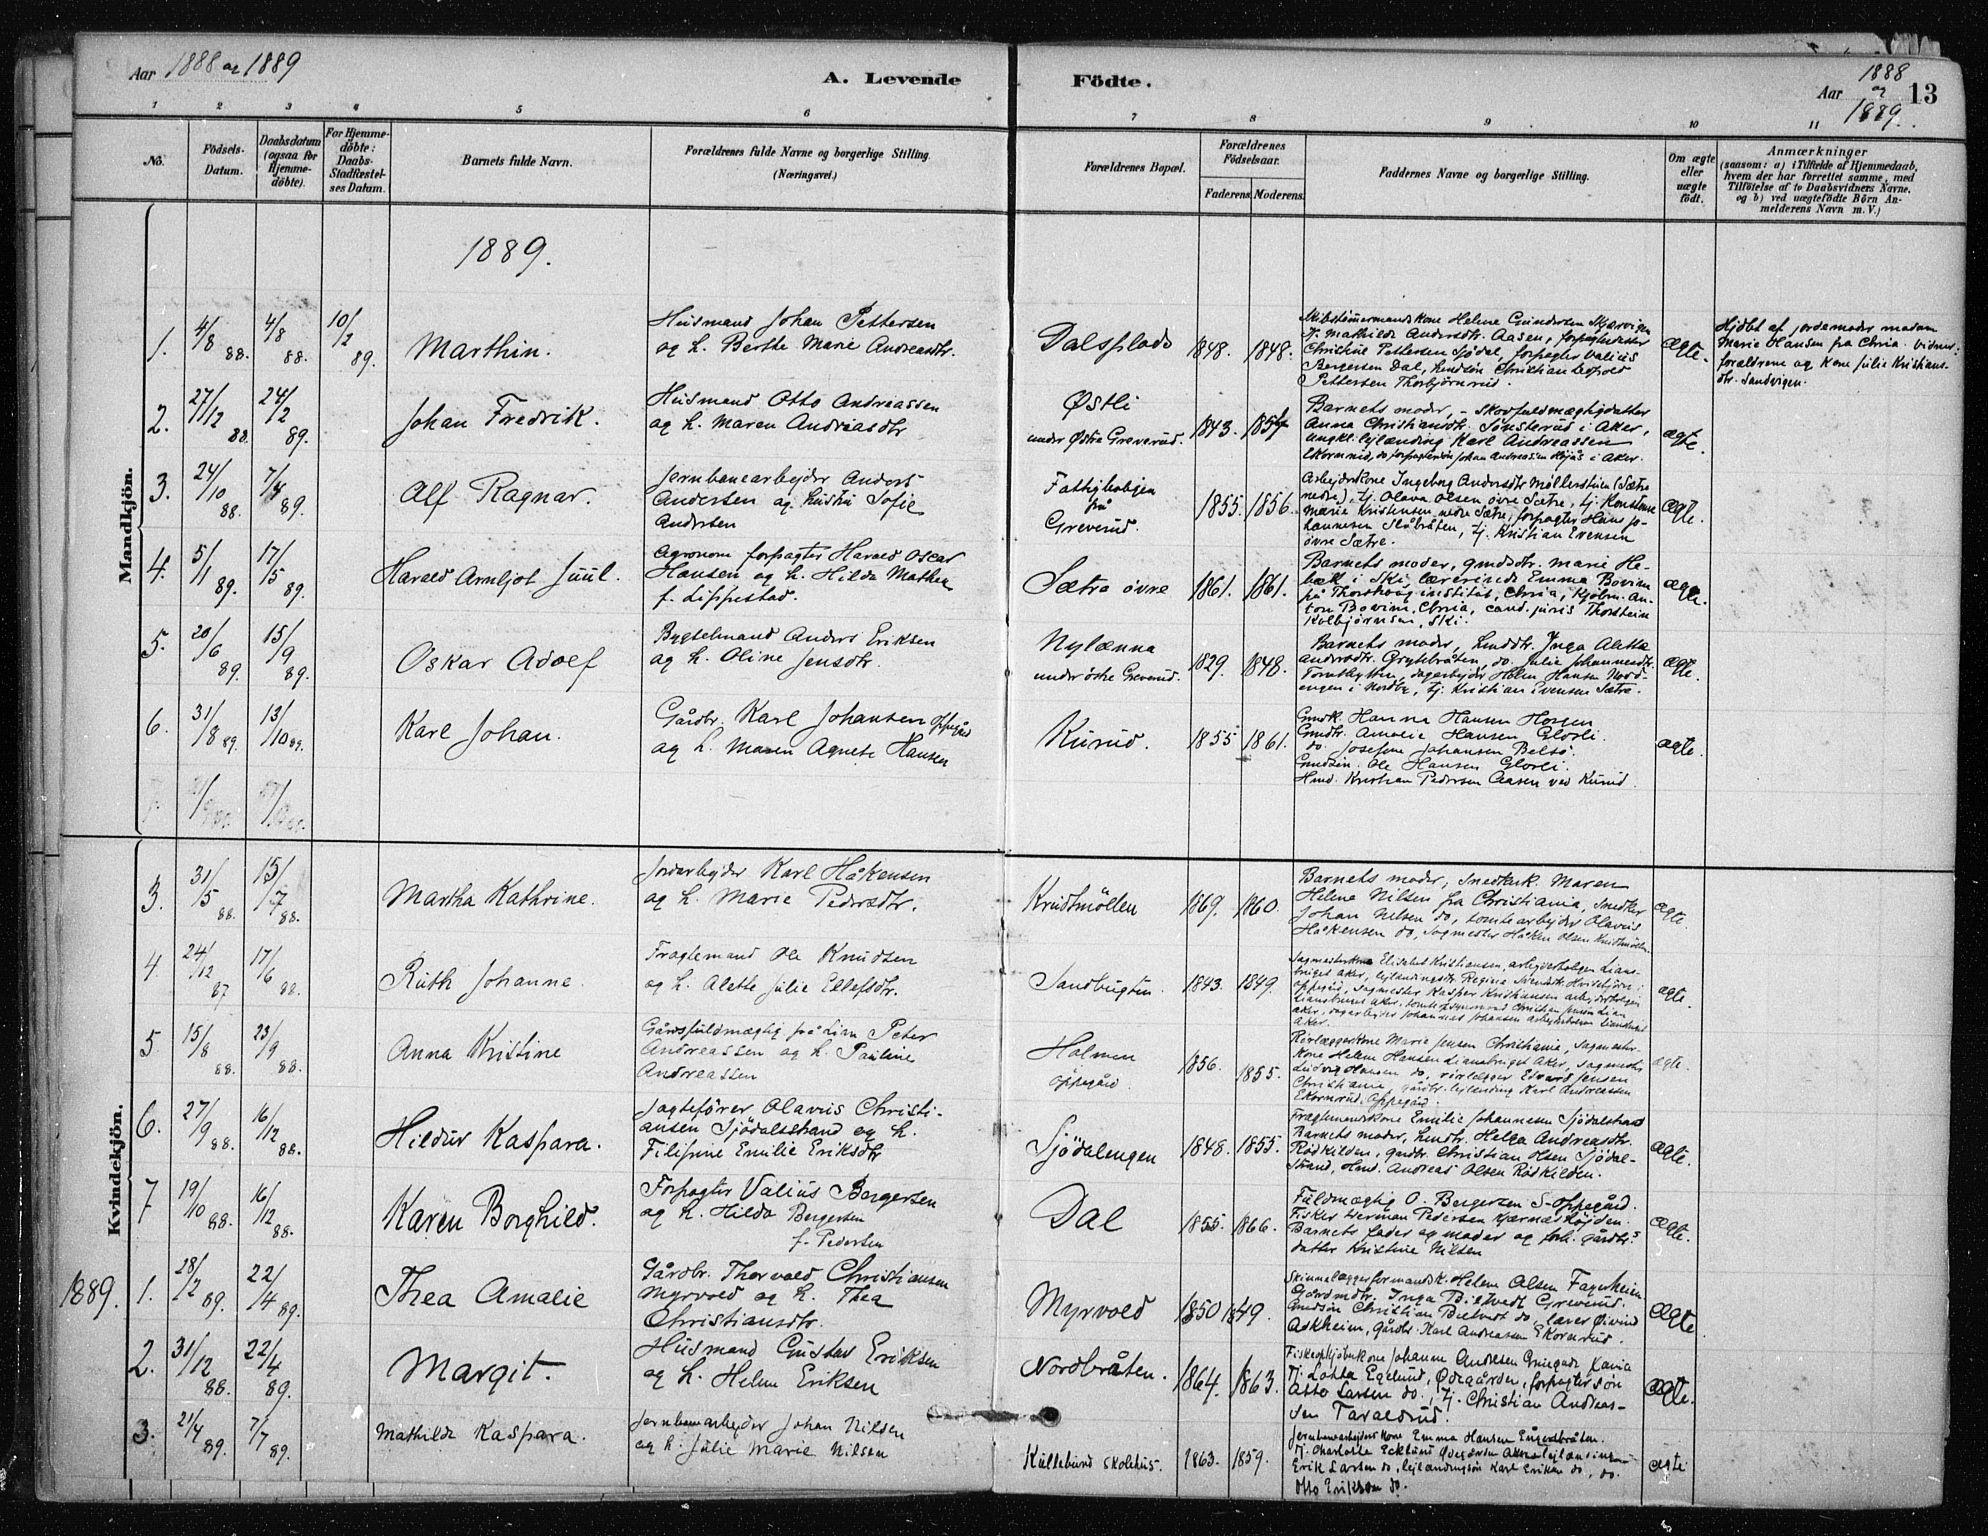 Aar 1888 og 1889
A. Levende Födte.
Aar 1888 og 1889. 13
1 2 3 4 5 6 7 8 9 10 11
No.
Födsels-Datum.
Daabsdatum (ogsaa for Hjemme-döbte).
For Hjemme-döbte: Daabs-Stadfæstel-ses Datum.
Barnets fulde Navn.
Forældrenes fulde Navne og borgerlige Stilling. (Næringsvei.)
Forældrenes Bopæl.
Forældrenes Födselsaar.
Faderens. Moderens.
Faddernes Navne og borgerlige Stilling.
Om ægte eller uægte födt.
Anmærkninger
(saasom: a) i Tilfælde af Hjemmedaab,
hvem der har forrettet samme, med
Tilföielse af to Daabsvidners Navne.
og b) ved uægtefödte Börn An-
melderens Navn m. V.)
Mandkjön.
1889.
1. 4/8 88. 4/8 88. 10/2 89. Marthin.
Husmand Johan Pettersen
og h. Berthe Marie Andreasdtr.
Dalsplads 1848. 1848.
Skibstömmermandskone Helene Gundersen
tj. Mathilde Andersdtr. Aasen, forpagterdatter
Christine Pettersen Sjödal, forpagter Valius
Bergersen Dal, hussön Christian Leopold
Pettersen Thorbjörnrud.
ægte.
Hjdbt af jordemoder madam
Marie Hansen fra Chria. Vidner:
forældrene og kone Julie Kristians-
dtr. Sandvigen.
2. 27/12 88 24/2 89. Johan Fredrik.
Husmand Otto Andreassen
og h. Maren Andreasdtr
Østli
under Østre Greverud. 1843.
Barnets moder, - Skovfuldmægtigdatter
Anna Christiansdtr. Sönsterud i Aker,
ungkl. leilænding Karl Andreassen
Ekornrud, do forpagtersön Johan Andreassen i Aker.
ægte.
3. 24/10 88. 7/4 89. Alf Ragnar.
Jernbanearbejder Anders
Andersen og hustru Sofie
Andersen
Fattigbolgen
på
Greverud. 1855. 1856.
Arbejderkone Ingeborg Andersdtr Möllerstuen (Sætre
nedre), tj. Olava Olsen övre Sætre, tj. Konstanse
Marie Kristensen nedre Sætre, forpagter Hans Jo-
hannesen Slåbråten, tj. Kristian Evensen
övre Sætre.
ægte.
4. 5/1 89. 17/5 89. Harald Arnljot Juul.
Agronom forpagter Harald Oscar
Hansen og h. Hilda Mathea
f. Lippestad.
Sætra övre 1861. 1861.
Barnets moder, gmdsdtr. Marie He-
bæk i Ski, lærerinde Emma Bovim
på Thorshaug institut, Chria, kjöbm. An-
ton Bovim, Chria, cand. juris Thorstein
Kolbjörnsen, Ski.
ægte.
5. 20/6 89. 15/9 89. Oskar Adolf
Bygselmand Anders Eriksen
og h. Oline Jensdtr.
Nylænna
under östre Greverud. 1829. 1848.
Barnets moder, husdtr. Inga Aletta
Andersdtr. Grytebråten, do. Julie Johannesdtr.
Tomtehytten, dagarbejder Helen Hansen Nord-
engen i Nordby, tj. Kristian Evensen Sætre.
ægte.
6. 31/8 89. 13/10 89. Karl Johan.
Gårdbr. Karl Johansen Oppegård
og h. Maren Agnete Hansen
Kurud. 1855 1861.
Gmdk. Hanna Hansen
Gmdtr. Amalie Hansen Glosli.
do. Josefine Johansen Belsö.
Gmdsön. Ole Hansen Glosli.
Hmd. Kristian Pedersen Aasen ved Kurud.
ægte.
Kvindekjön.
3. 31/5 88. 15/7 88. Martha Kathrine.
Jordarbejder Karl Håkensen
og h. Marie Pedersdtr.
Krudtmöllen 1869. 1860.
Barnets moder, Snedkerk. Maren
Helene Nilsen fra Christiania, Snedker
Johan Nilsen do, tomtearbejder Olavus
Håkensen do, Sagmester Håken Olsen Krudtmöllen
ægte.
4. 24/12 87 17/6 88. Ruth Johanne.
Fragtemand Ole Knudsen
og h. Alette Julie Ellefsdtr.
Sandbugten. 1843. 1849.
Sagmesterkone Elisabet Kristiansen, arbejderboligen Lians-
bruget Aker, lejlændingsdtr Regine
Oppegård, Sagmester Kasper Kristiansen arbejderboligen
Liansbruget Aker, Christian
Aker, dagarbejder Johannes Johansen
Aker.
ægte.
5 15/8 88. 23/9 88. Anna Kristine
Gårdsfuldmægtig på Lian Peter
Andreassen og h. Pauline
Andreassen
Holmen
Oppegård. 1856. 1855.
Rörlæggerkone Marie Jensen Christiania, Sagmester-
kone Helene Hansen Liansbruget Aker, Sagmester
Ludvig Hansen do, rörlægger Edvard Jensen
Christiania, gårdbr. lejlænding Karl Andreassen
Ekornrud, Oppegård.
ægte.
6. 27/9 88. 16/12 88. Hildur Kaspara.
Jagtefører Olavus Christi-
ansen Sjödalsstrand og h.
Filipine Emilie Eriksdtr
Sjödalengen 1848. 1855.
Fragtemandskone Emilie Johannesen Sjödalstrand
Barnets moder, husdtr. Helga Andreasdtr.
Rödkilden, gmdtr. Christian Olsen Sjödal-
strand, Hmd. Andreas Olsen Rödkilden.
ægte.
7 19/10 88. 16/12 88. Karen Borghild.
Forpagter Valius Bergersen
og h. Hilda Bergersen
f. Pedersen
Dal 1855. 1866.
Fuldmægtig O. Bergersen S. Oppegård.
Fisker Herman Pedersen
Barnets fader og moder og forh. gårdbr.s
datter Kristine Nilsen
ægte.
1889. 1. 28/2 89. 22/4 89. Thea Amalie
Gårdbr. Thorvald Christiansen
Myrvold og h. Thea
Christiansdtr.
Myrvold 1850 1849.
Skinnelæggerformandsk. Helene Olsen Fagerheim
Gårdmdtr. Inga Biltvedt Greverud.
Gmdsön Christian Biltvedt do, lærer Öivind
Askheim, Gårdbr. Karl Andreassen Ekornrud.
ægte
2. 31/12 88. 22/4 89. Margit.
Husmand Gustav Eriksen
og h. Helene Eriksen
Nordbråten. 1864. 1863.
Fiskeopkjöberkone Johanne Andresen
Tj. Lotta Egelund, Ödegården, forpagtersön
Otto Larsen do., tj. Christian Andreas-
sen Taraldrud.
ægte.
3. 21/4 89. 7/7 89. Mathilde Kaspara.
Jernbanearbejder Johan Nilsen
og h. Julie Marie Nilsen
Kullebund Skolehus. 1863. 1859.
Jernbanearbejderskone Emma Hansen Engedbråten.
Tj. Charlotte Ecklund Ödegården Aker
Erik Larsen do, lejlændingsön Karl Eriksen do, do.
Otto Eriksen do.
ægte